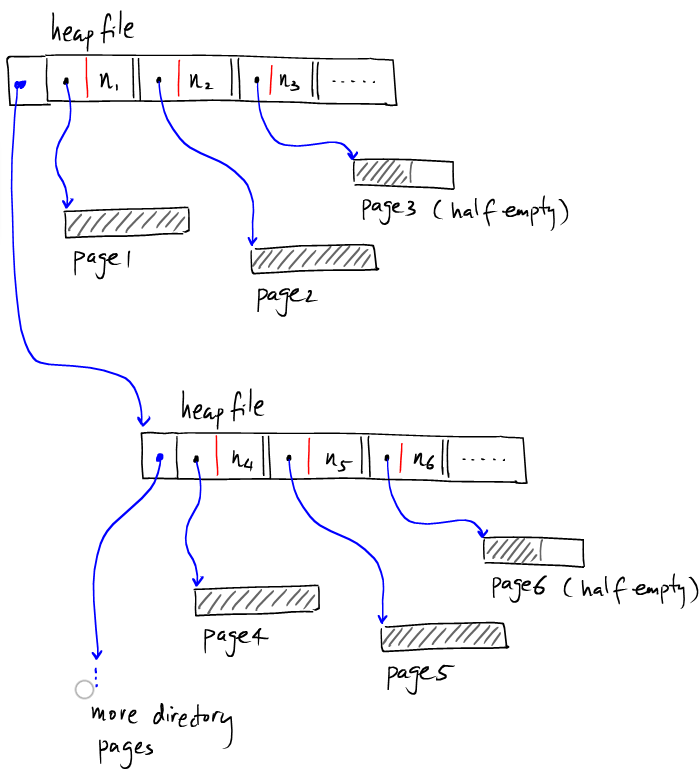 heap file
n1 n2 n3 .....
page3 (half empty)
page1
page2
heap file
n4 n5 n6 .....
page6 (half empty)
page4
page5
more directory
pages